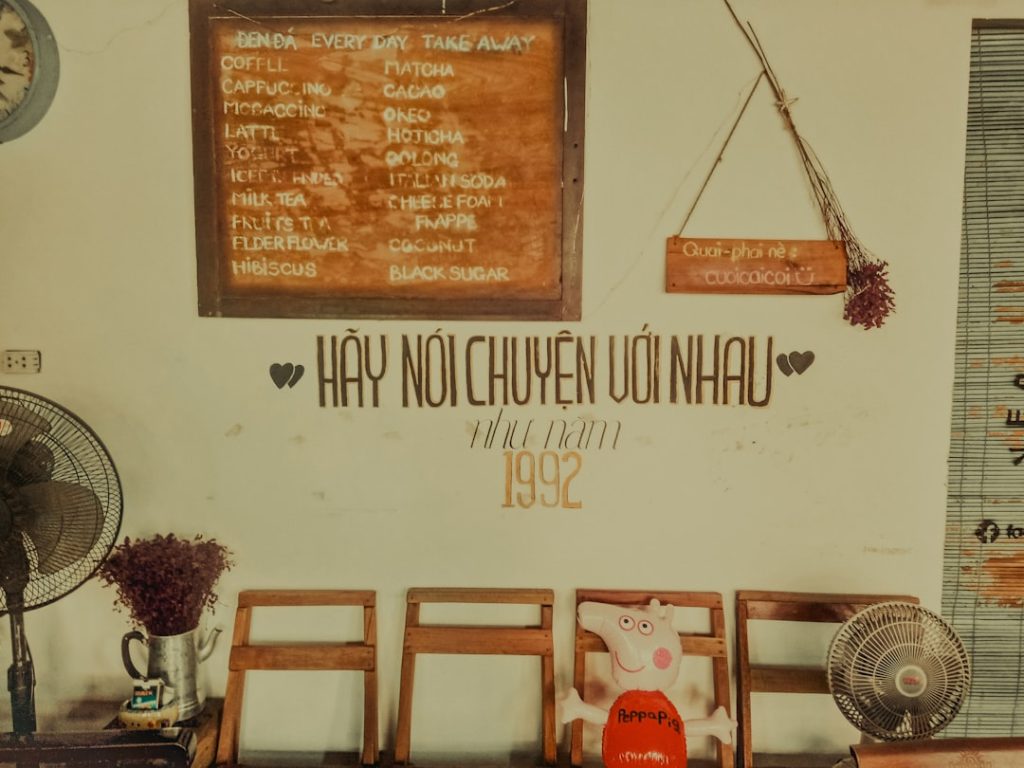 ĐEN ĐÁ EVERY DAY TAKE AWAY
COFFEE
CAPPUCCINO
MOCACCINO
LATTE
YOGURT
ICE BLENDED
MILK TEA
FRUITS TEA
ELDERFLOWER
HIBISCUS
MATCHA
CACAO
OREO
HOJICHA
OOLONG
ITALIAN SODA
CHEESE FOAM
FRAPPE
COCONUT
BLACK SUGAR
Quai-phai nè :
cuoicaicoi
HÃY NÓI CHUYỆN VỚI NHAU
như năm
1992
PEPPA PIG